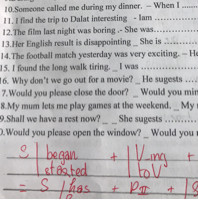 10.Someone called me during my dinner. – When I ......
11. I find the trip to Dalat interesting - Iam ..................
12.The film last night was boring .- She was..................
13.Her English result is disappointing _ She is ..............
14.The football match yesterday was very exciting. – He
15. I found the long walk tiring. _ I was ....................
16. Why don't we go out for a movie? _ He sugests .....
7.Would you please close the door? _ Would you min
8.My mum lets me play games at the weekend. _ My
9.Shall we have a rest now? _ _ She sugests ............
0.Would you please open the window? _ Would you
S | began + | V-ing +
started to V
= S / has + PII + | S